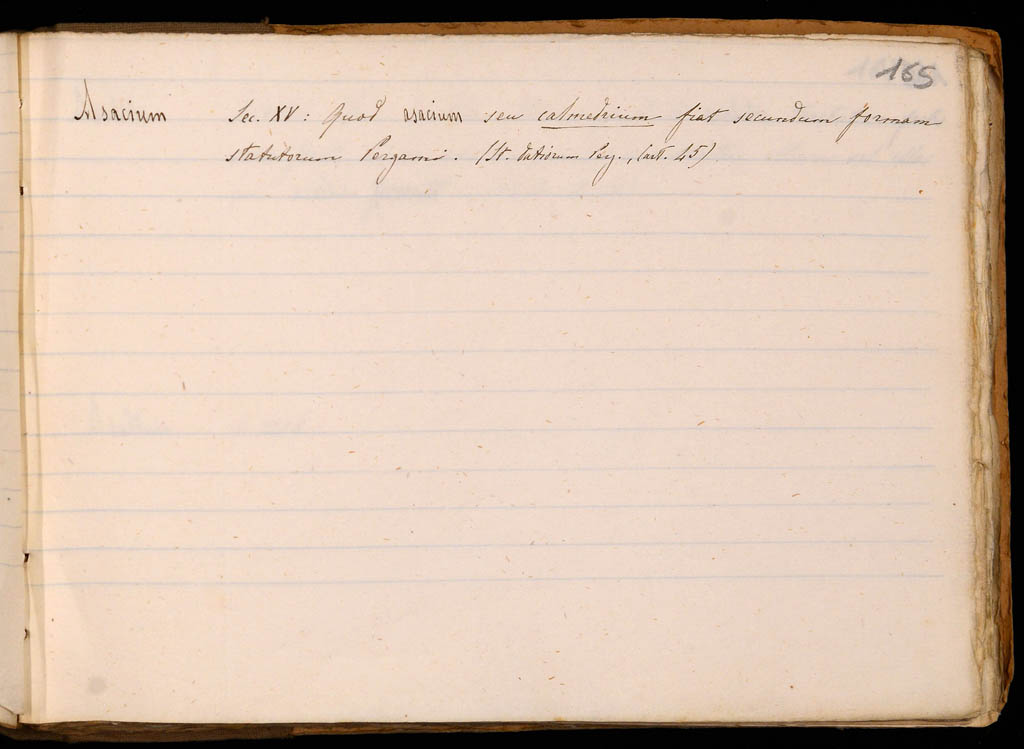 165
Asacium Sec. XV: Quod asacium seu calmedrium fiat secundum formam
statutorum Pergami. (St. datiorum Perg., (art. 45)